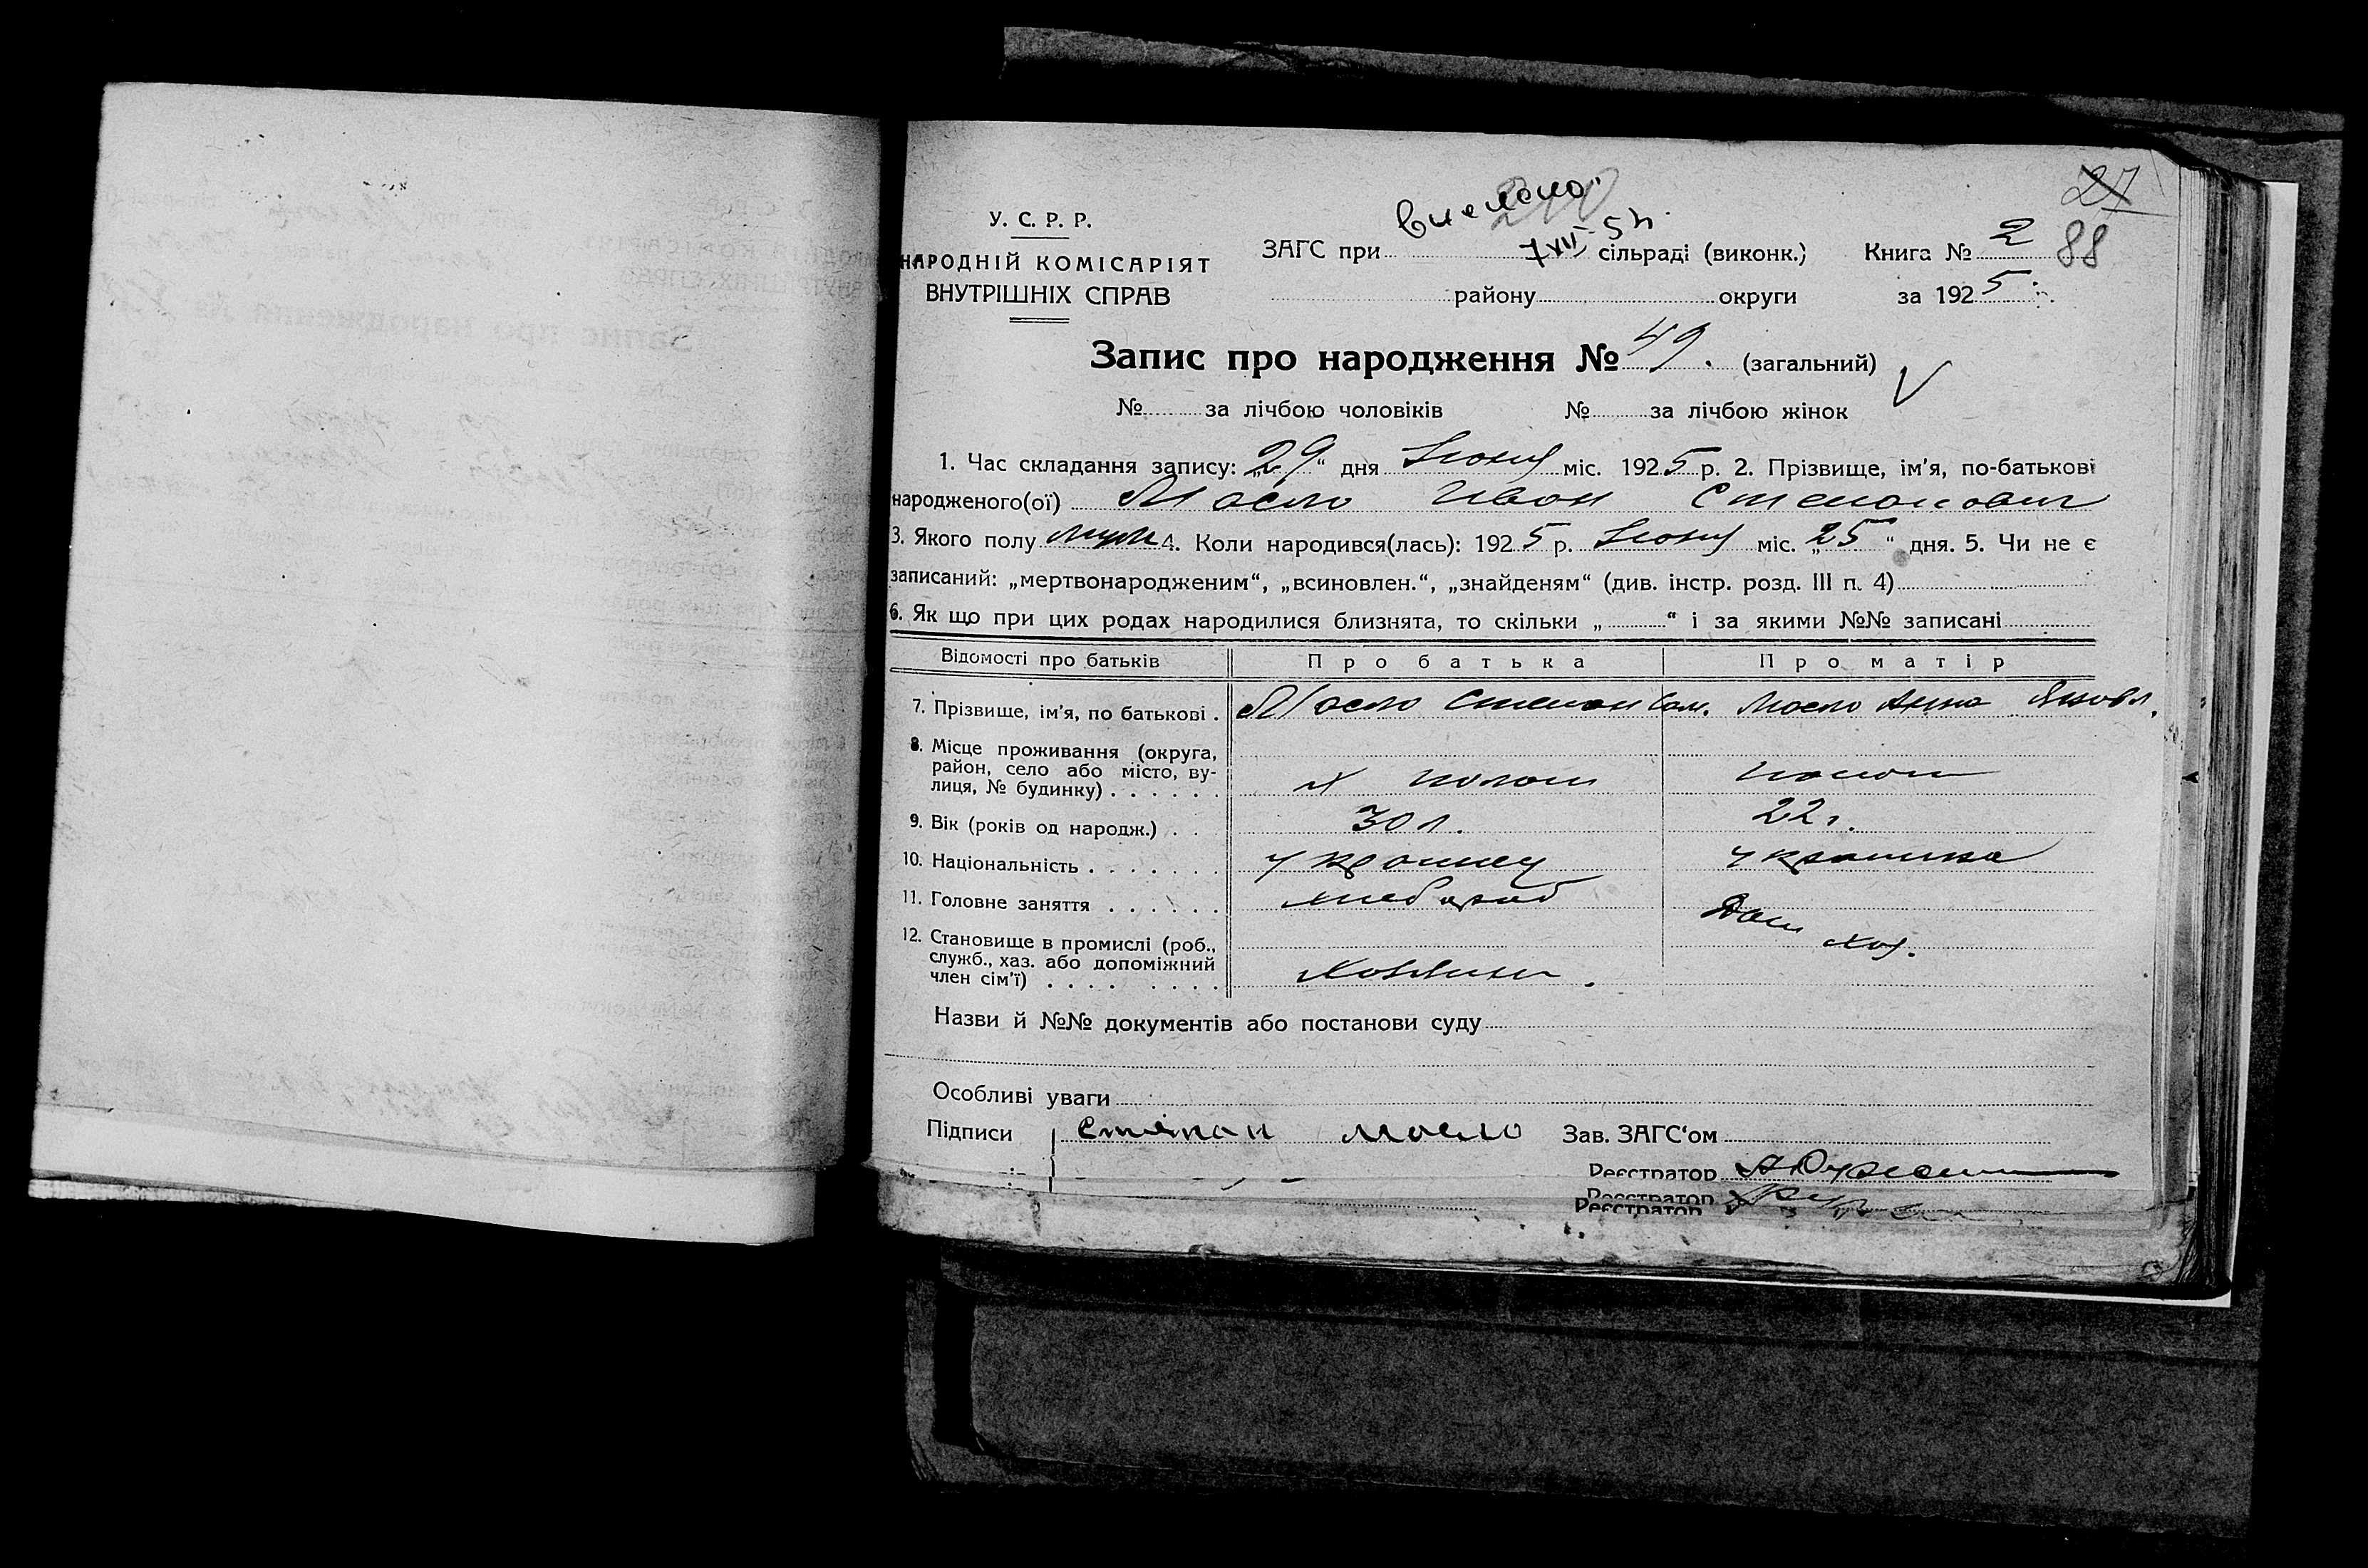 27
У. С. Р. Р.
НАРОДНІЙ КОМІСАРІЯТ
ВНУТРІШНІХ СПРАВ
ЗАГС при 7 XII 5 сільраді (виконк.) Книга № 2 88
району округи за 1925
Запис про народження № 49. (загальний)
№ за лічбою чоловіків № за лічбою жінок
1. Час складання запису: „29“ дня Июня міс. 1925 р. 2. Прізвище, ім'я, по-батькові
народженого(ої) Масло Иван Степанович
3. Якого полу муж 4. Коли народився(лась): 1925 р. Июня міс. „25“ дня. 5. Чи не є
записаний: „мертвонародженим“, „всиновлен.“, „знайденям“ (див. інстр. розд. III п. 4)
6. Як що при цих родах народилися близнята, то скільки „ “ і за якими №№ записані
Відомості про батьків Про батька Про матір
7. Прізвище, ім'я, по батькові . Масло Степан Сам. Масло Анна Яковл.
8. Місце проживання (округа,
район, село або місто, ву-
лиця, № будинку) . . . . . .
9. Вік (років од народж.) . . 30 л. 22 г.
10. Національність . . . . . . . украинец украинка
11. Головне заняття . . . . . . хлебороб Дом
хоз.
12. Становище в промислі (роб.,
служб., хаз. або допоміжний
член сім'ї) . . . . . . . . Хозяин.
Назви й №№ документів або постанови суду
Особливі уваги
Підписи Степан Масло Зав. ЗАГС'ом
Реєстратор
Реєстратор
Реєстратор